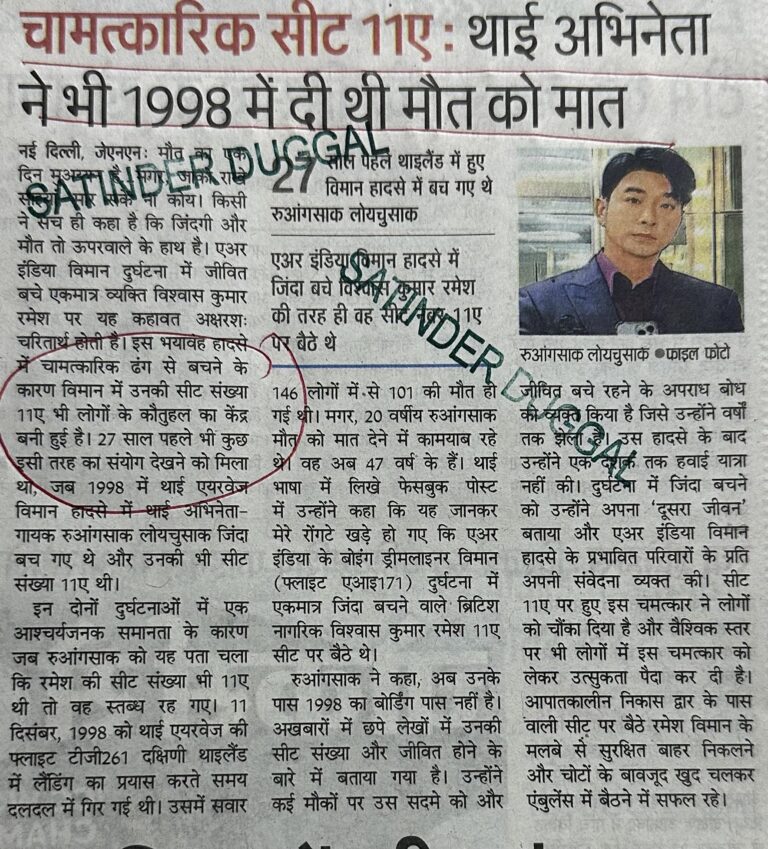 चामत्कारिक सीट 11ए : थाई अभिनेता
ने भी 1998 में दी थी मौत को मात
नई दिल्ली, जेएनएन: मौत का एक
दिन मुअय्यन है। मगर, जाको राखे
साइयां मार सके ना कोय। किसी
ने सच ही कहा है कि जिंदगी और
मौत तो ऊपरवाले के हाथ है। एअर
इंडिया विमान दुर्घटना में जीवित
बचे एकमात्र व्यक्ति विश्वास कुमार
रमेश पर यह कहावत अक्षरशः
चरितार्थ होती है। इस भयावह हादसे
में चामत्कारिक ढंग से बचने के
कारण विमान में उनकी सीट संख्या
11ए भी लोगों के कौतुहल का केंद्र
बनी हुई है। 27 साल पहले भी कुछ
इसी तरह का संयोग देखने को मिला
था, जब 1998 में थाई एयरवेज
विमान हादसे में थाई अभिनेता-
गायक रुआंगसाक लोयचुसाक जिंदा
बच गए थे और उनकी भी सीट
संख्या 11ए थी।
इन दोनों दुर्घटनाओं में एक
आश्चर्यजनक समानता के कारण
जब रुआंगसाक को यह पता चला
कि रमेश की सीट संख्या भी 11ए
थी तो वह स्तब्ध रह गए। 11
दिसंबर, 1998 को थाई एयरवेज की
फ्लाइट टीजी261 दक्षिणी थाइलैंड
में लैंडिंग का प्रयास करते समय
दलदल में गिर गई थी। उसमें सवार
27 साल पहले थाइलैंड में हुए
विमान हादसे में बच गए थे
रुआंगसाक लोयचुसाक
एअर इंडिया विमान हादसे में
जिंदा बचे विश्वास कुमार रमेश
की तरह ही वह सीट नंबर 11ए
पर बैठे थे
146 लोगों में से 101 की मौत हो
गई थी। मगर, 20 वर्षीय रुआंगसाक
मौत को मात देने में कामयाब रहे
थे। वह अब 47 वर्ष के हैं। थाई
भाषा में लिखे फेसबुक पोस्ट
में उन्होंने कहा कि यह जानकर
मेरे रोंगटे खड़े हो गए कि एअर
इंडिया के बोइंग ड्रीमलाइनर विमान
(फ्लाइट एआइ171) दुर्घटना में
एकमात्र जिंदा बचने वाले ब्रिटिश
नागरिक विश्वास कुमार रमेश 11ए
सीट पर बैठे थे।
रुआंगसाक ने कहा, अब उनके
पास 1998 का बोर्डिंग पास नहीं है।
अखबारों में छपे लेखों में उनकी
सीट संख्या और जीवित होने के
बारे में बताया गया है। उन्होंने
कई मौकों पर उस सदमे को और
रुआंगसाक लोयचुसाक ●फाइल फोटो
जीवित बचे रहने के अपराध बोध
को व्यक्त किया है जिसे उन्होंने वर्षों
तक झेला है। उस हादसे के बाद
उन्होंने एक दशक तक हवाई यात्रा
नहीं की। दुर्घटना में जिंदा बचने
को उन्होंने अपना 'दूसरा जीवन'
बताया और एअर इंडिया विमान
हादसे के प्रभावित परिवारों के प्रति
अपनी संवेदना व्यक्त की। सीट
11ए पर हुए इस चमत्कार ने लोगों
को चौंका दिया है और वैश्विक स्तर
पर भी लोगों में इस चमत्कार को
लेकर उत्सुकता पैदा कर दी है।
आपातकालीन निकास द्वार के पास
वाली सीट पर बैठे रमेश विमान के
मलबे से सुरक्षित बाहर निकलने
और चोटों के बावजूद खुद चलकर
एंबुलेंस में बैठने में सफल रहे।
SATINDER DUGGAL
SATINDER DUGGAL